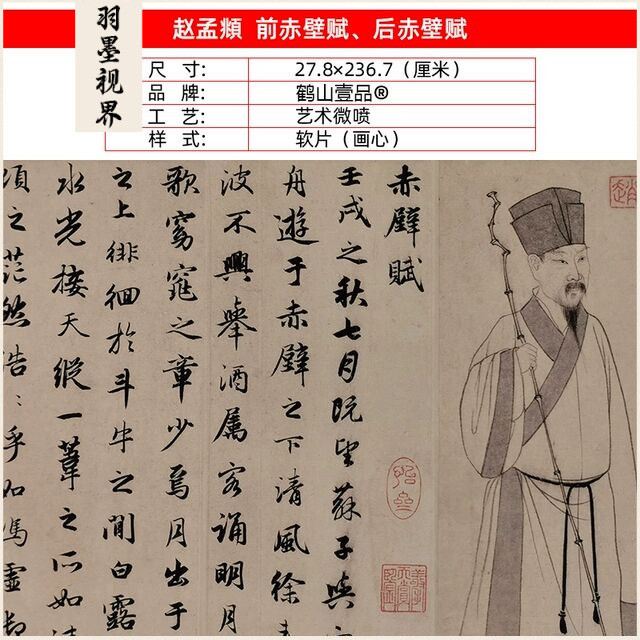 羽墨视界
赵孟頫 前赤壁赋、后赤壁赋
尺 寸: 27.8×236.7（厘米）
品 牌: 鹤山壹品®
工 艺: 艺术微喷
样 式: 软片（画心）
赤壁賦
壬戌之秋七月既望蘇子與
舟遊于赤壁之下清風徐
波不興舉酒屬客誦明月
歌窈窕之章少焉月出于
之上徘徊於斗牛之間白露
水光接天縱一葦之所如
頃之茫然浩〻乎如馮虛